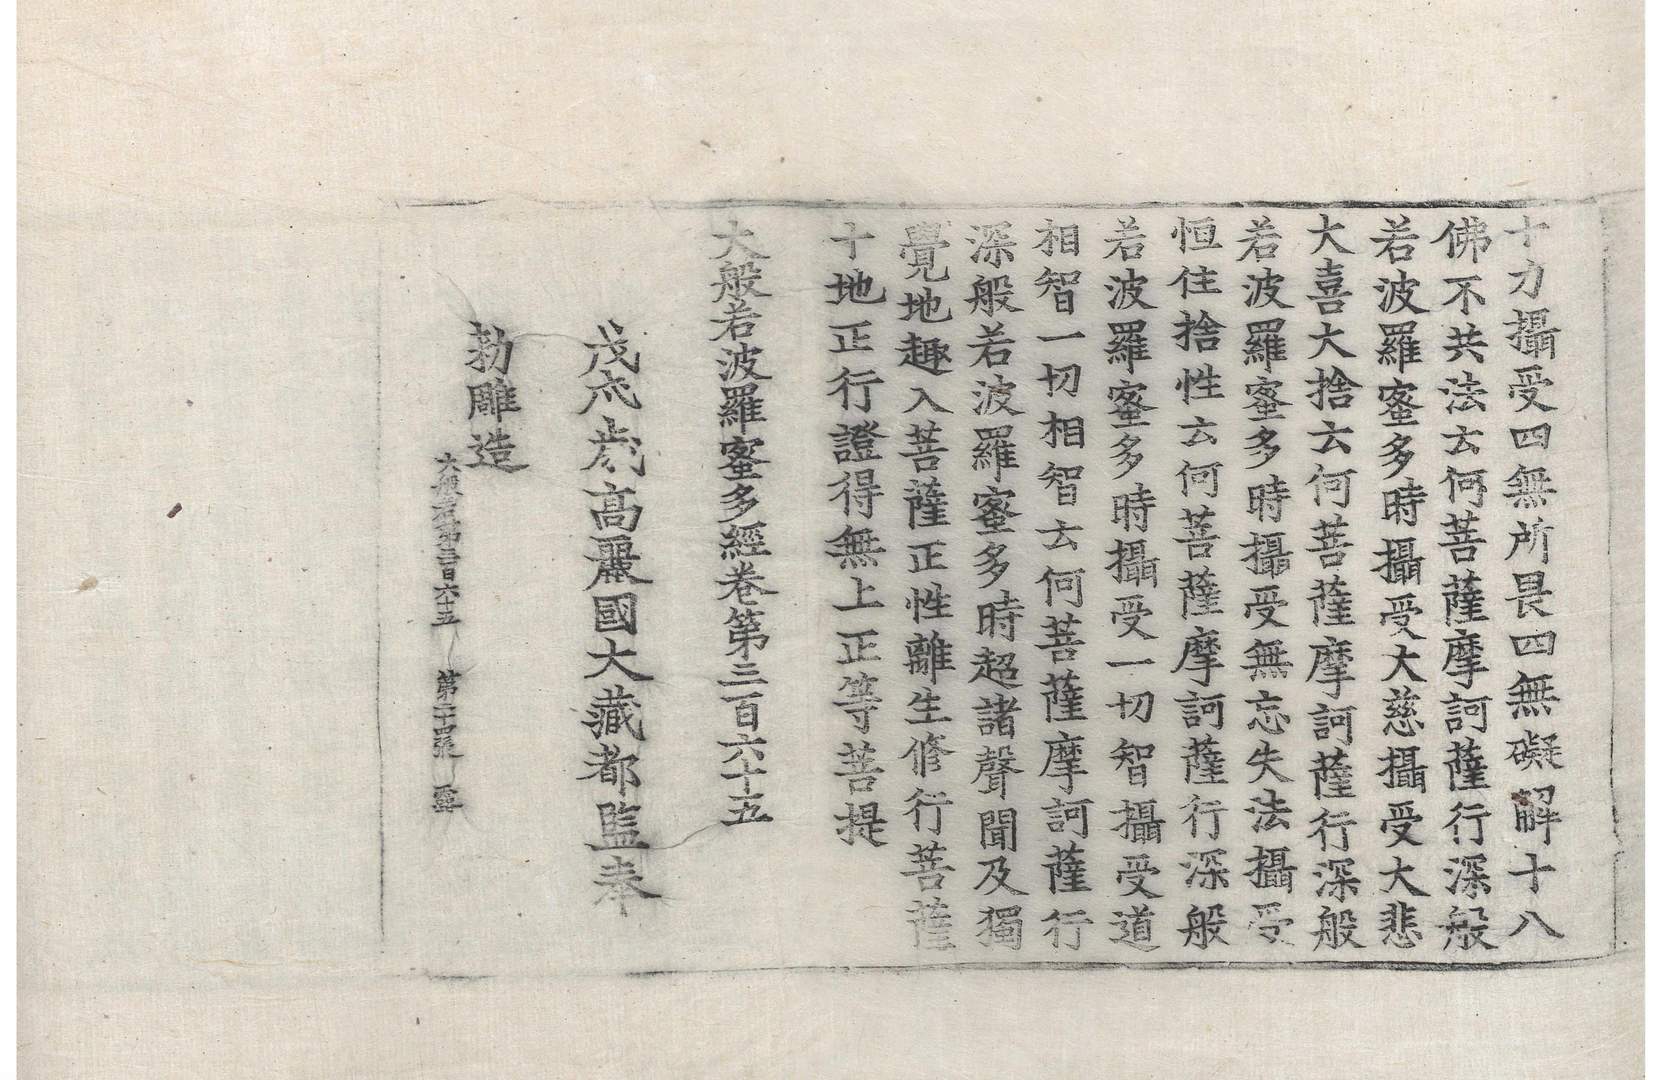 十力攝受四無所畏四無礙解十八
佛不共法云何菩薩摩訶薩行深般
若波羅蜜多時攝受大慈攝受大悲
大喜大捨云何菩薩摩訶薩行深般
若波羅蜜多時攝受無忘失法攝受
恒住捨性云何菩薩摩訶薩行深般
若波羅蜜多時攝受一切智攝受道
相智一切相智云何菩薩摩訶薩行
深般若波羅蜜多時超諸聲聞及獨
覺地趣入菩薩正性離生修行菩薩
十地正行證得無上正等菩提
大般若波羅蜜多經卷第三百六十五
戊戌歲高麗國大藏都監奉
勅雕造
大般若第三百六十五 第二十四張